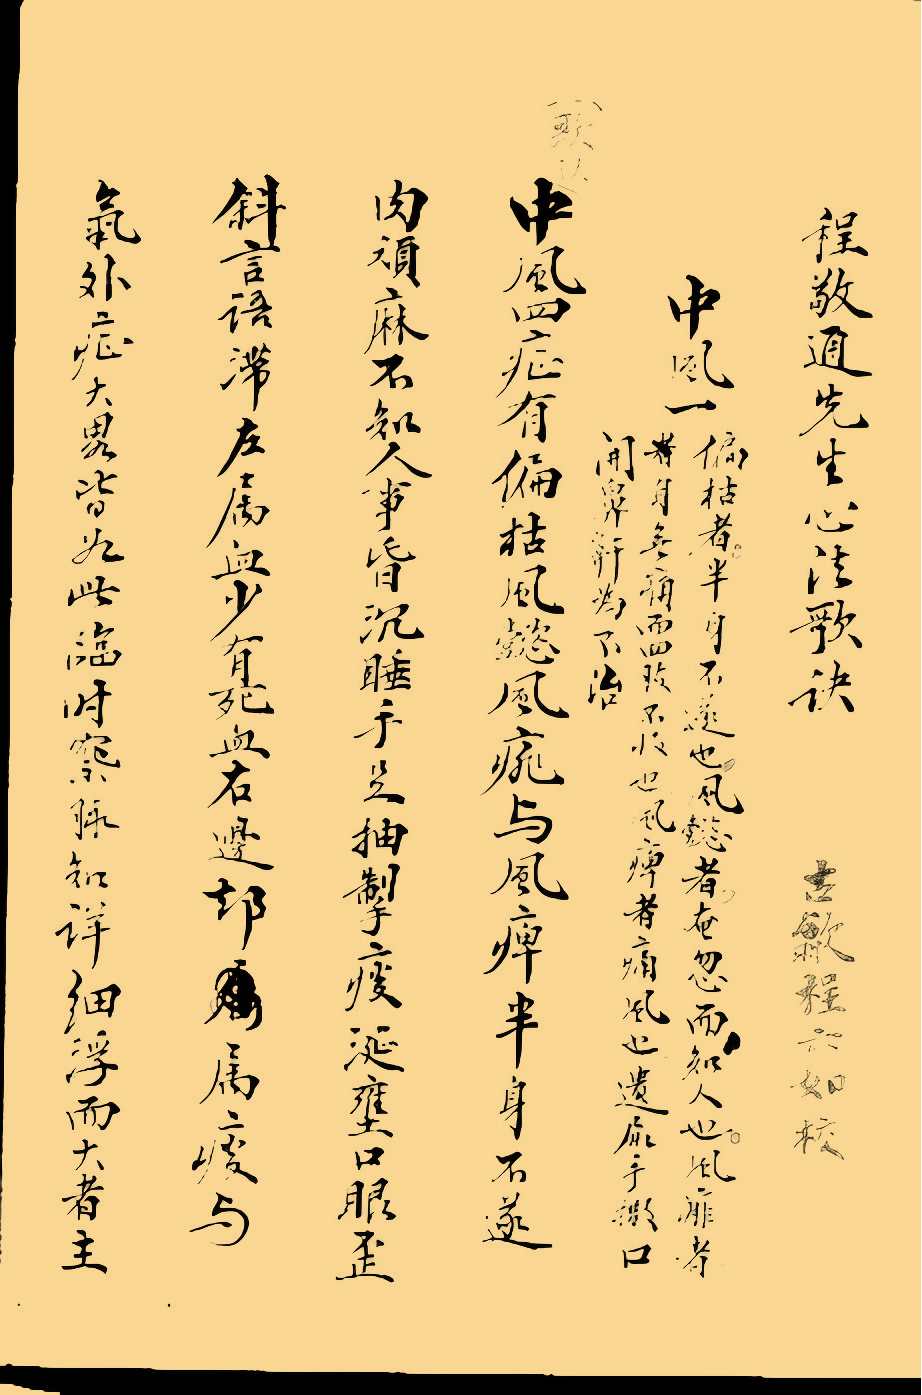 程敬通先生心法歌訣
古歙程六如校
中風一
偏枯者半身不遂也風懿者奄忽而知人也風痱者
者身無痛而四肢不收也風痺者痛風也遺尿手撒口
開鼻鼾為不治
中風四症有偏枯風懿風痱与風痺半身不遂
肉頑麻不知人事昏沉睡手足抽掣痰涎壅口眼歪
斜言語滯左属血少有死血右邊却属痰与
氣外症大畧皆如此臨时察脉知詳細浮而大者主